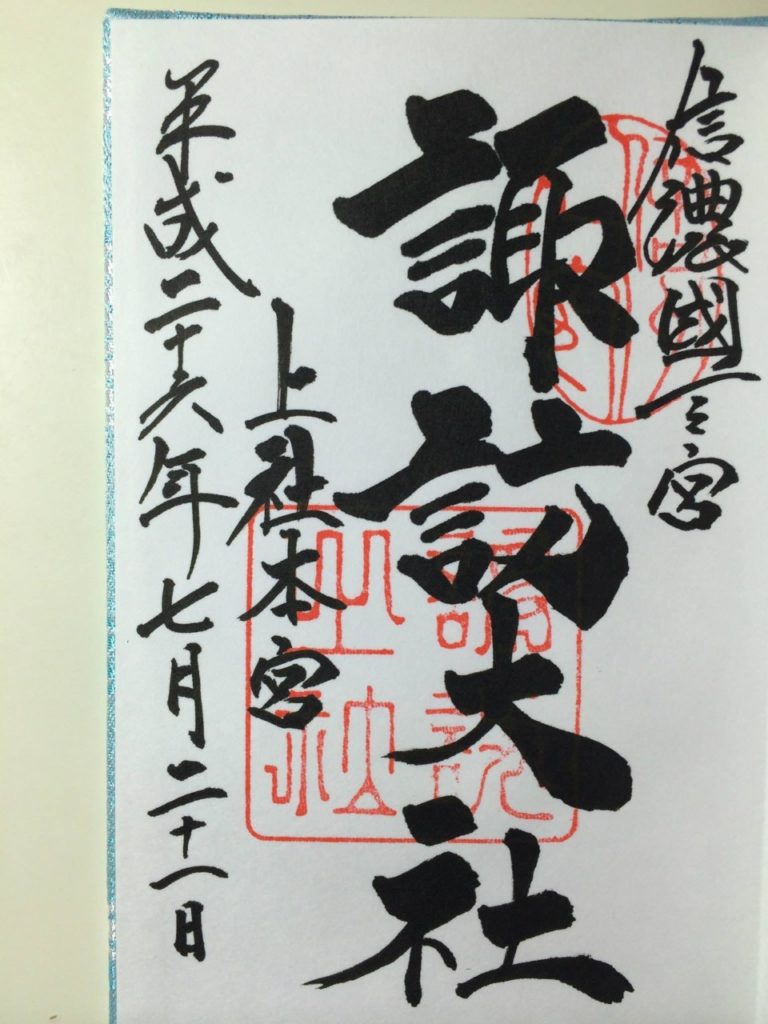 信濃國一之宮
諏訪大社
上社本宮
平成二十六年七月二十一日